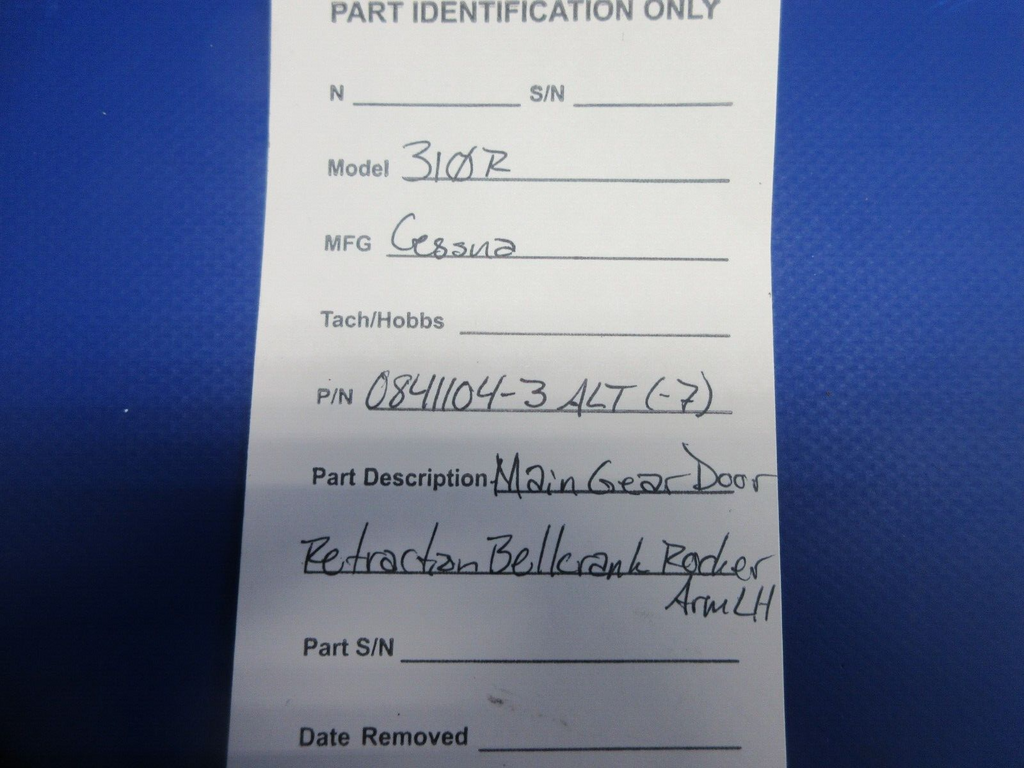 PART IDENTIFICATION ONLY
N S/N
Model 310R
MFG Cessna
Tach/Hobbs
P/N 0841104-3 ALT (-7)
Part Description Main Gear Door
Retraction Bellcrank Rocker
Arm LH
Part S/N
Date Removed